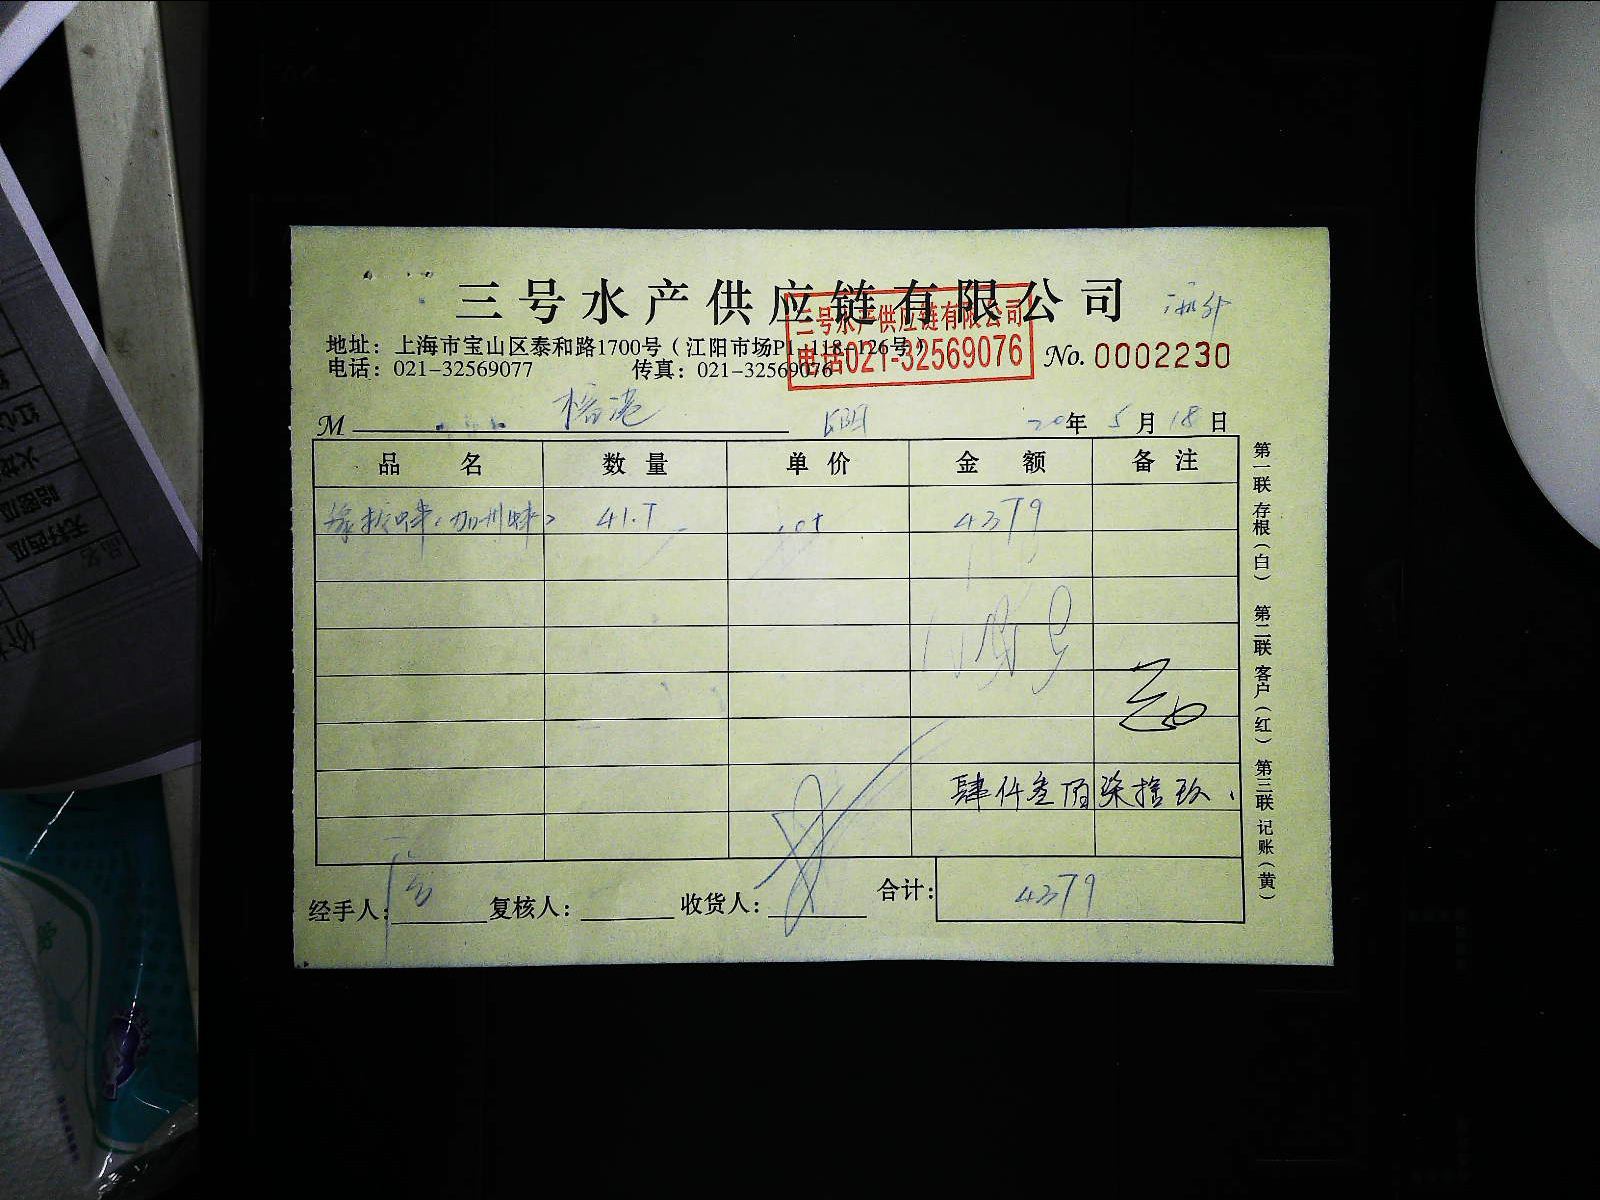 三号水产供应链有限公司
三号水产供应链有限公司
电话021-32569076
地址：上海市宝山区泰和路1700号（江阳市场P1-118-126号）
电话：021-32569077 传真：021-32569076
No. 0002230
M 榕港 20年 5月 18日
品名 数量 单价 金额 备注
象拔蚌（加州蚌） 4379
肆仟叁佰柒拾玖
经手人： 复核人： 收货人： 合计： 4379
第一联 存根（白） 第二联 客户（红） 第三联 记账（黄）
红心
火龙
哈密瓜
无籽西瓜
品名